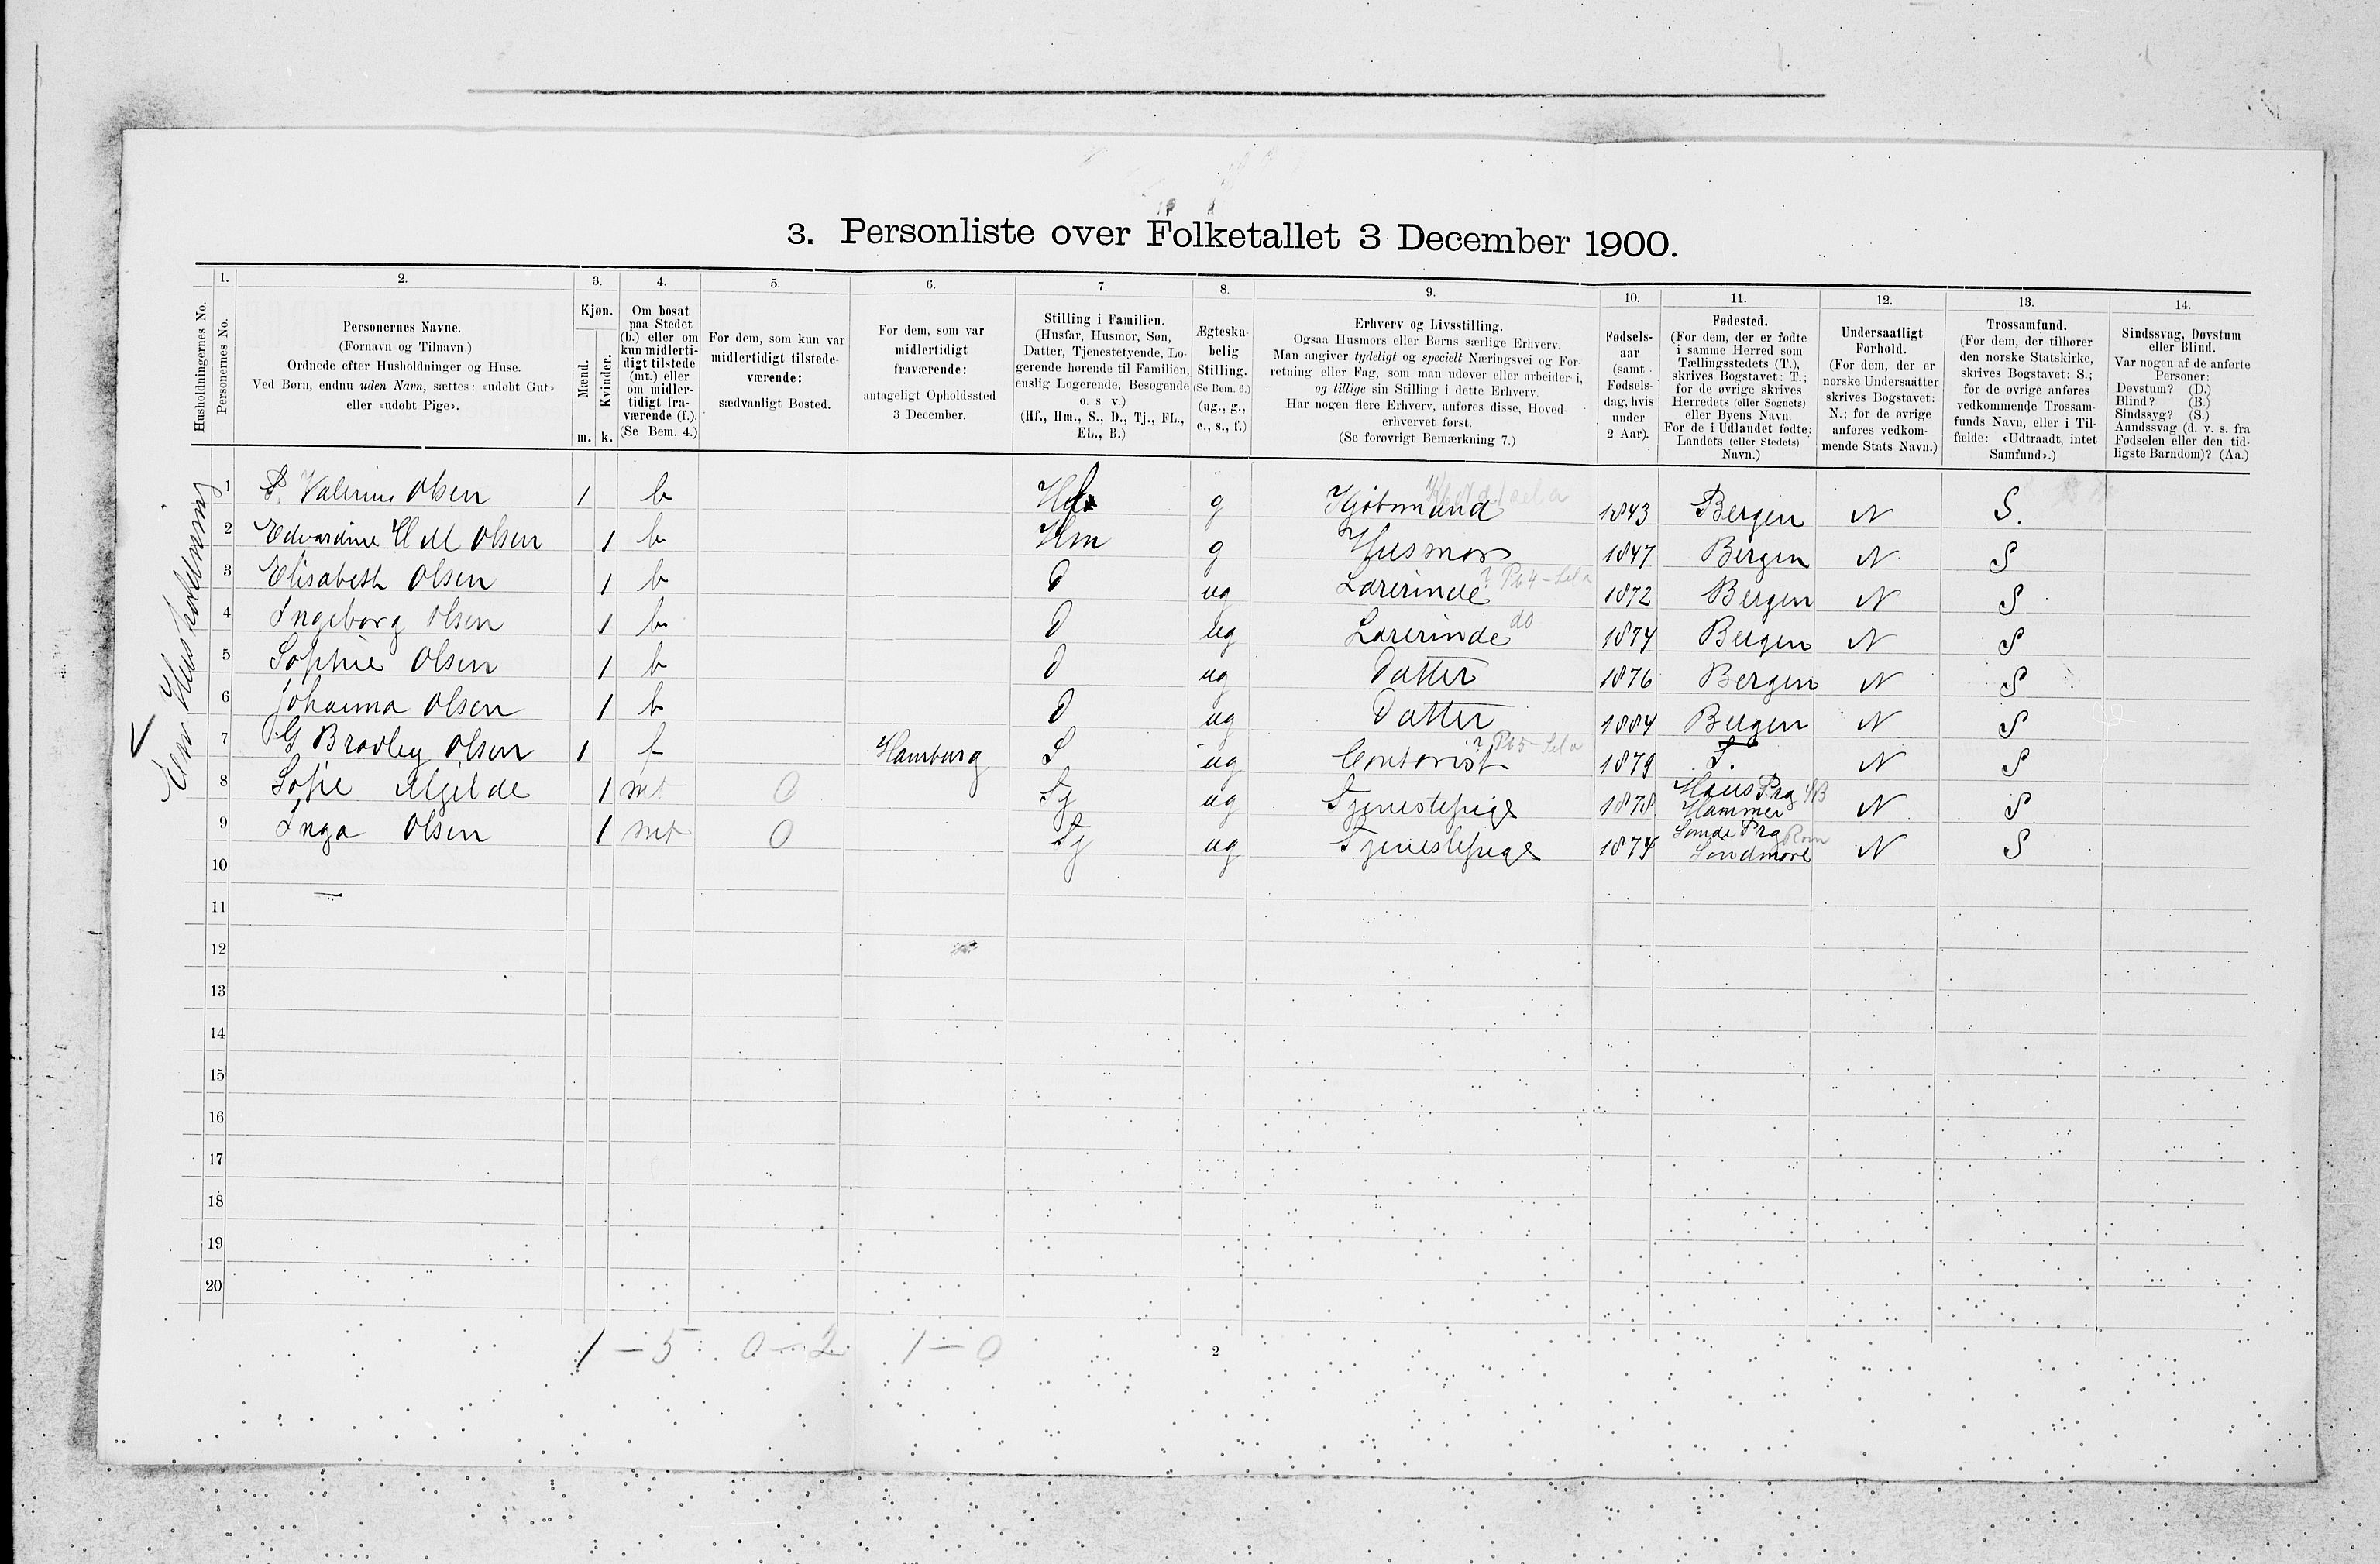 3. Personliste over Folketallet 3 December 1900.
Husholdningernes No.
1.
Personernes No.
2.
Personernes Navne.
(Fornavn og Tilnavn)
Ordnede efter Husholdninger og Huse.
Ved Børn, endnu uden Navn, sættes: «udøbt Gut»
eller «udøbt Pige».
3.
Kjøn.
Mænd.
Kvinder.
m. k.
4.
Om bosat
paa Stedet
(b.) eller om
kun midlerti-
digt tilstede
(mt.) eller
om midler-
tidigt fra-
værende (f.).
(Se Bem. 4.)
5.
For dem, som kun var
midlertidigt tilstede-
værende:
sædvanligt Bosted.
6.
For dem, som var
midlertidigt
fraværende:
antageligt Opholdssted
3 December.
7.
Stilling i Familien.
(Husfar, Husmor, Søn,
Datter, Tjenestetyende, Lo-
gerende hørende til Familien,
enslig Logerende, Besøgende
o. s v.)
(Hf., Hm., S., D., Tj., FL.,
EL., B.)
8.
Ægteska-
belig
Stilling.
(Se Bem. 6.)
(ug., g.,
e., s., f.)
9.
Erhverv og Livsstilling.
Ogsaa Husmors eller Børns særlige Erhverv.
Man angiver tydeligt og specielt Næringsvei og For-
retning eller Fag, som man udøver eller arbeider i,
og tillige sin Stilling i dette Erhverv.
Har nogen flere Erhverv, anføres disse, Hoved-
erhvervet først.
(Se forøvrigt Bemærkning 7.)
10.
Fødsels-
aar
(samt
Fødsels-
dag, hvis
under
2 Aar).
11.
Fødested.
(For dem, der er fødte
i samme Herred som
Tællingsstedets (T.),
skrives Bogstavet: T.;
for de øvrige skrives
Herredets (eller Sognets)
eller Byens Navn
For de i Udlandet fødte:
Landets (eller Stedets)
Navn.)
12.
Undersaatligt
Forhold.
(For dem, der er
norske Undersaatter
skrives Bogstavet:
N.; for de øvrige
anføres vedkom-
mende Stats Navn.)
13.
Trossamfund.
(For dem, der tilhører
den norske Statskirke,
skrives Bogstavet: S.;
for de øvrige anføres
vedkommende Trossam-
funds Navn, eller i Til-
fælde: «Udtraadt, intet
Samfund».)
14.
Sindssvag, Døvstum
eller Blind.
Var nogen af de anførte
Personer:
Døvstum? (D.)
Blind? (B.)
Sindssyg? (S.)
Aandssvag (d. v. s. fra
Fødselen eller den tid-
ligste Barndom)? (Aa.)
Een Husholdning
1 Valerius Olsen 1 b g Kjøbmand 1843 Bergen N S.
2 Edvardine H M Olsen 1 b Hm g Husmor 1847 Bergen N S
3 Elisabeth Olsen 1 b D ug Lærerinde 1872 Bergen N S
4 Ingeborg Olsen 1 b D ug Lærerinde do 1874 Bergen N S
5 Sophie Olsen 1 b D ug Datter 1876 Bergen N S
6 Johanna Olsen 1 b D ug Datter 1884 Bergen N S
7 G Bradley Olsen 1 f Hamburg S ug Contorist 1879 T. N S
8 Sofie Mjelde 1 mt 0 Tj ug Tjenestepige 1878 Haus Prg Hammer N S
9 Inga Olsen 1 mt 0 Tj ug Tjenestepige 1874 Prg Søndmøre N S
10
11
12
13
14
15
16
17
18
19
20
1 – 5 0 – 2 1 – 0
2